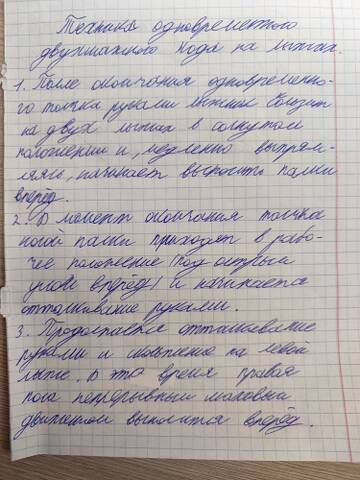 Техника одновременного
двухшажного хода на лыжах.
1. После окончания одновременно-
го толчка руками лыжник скользит
на двух лыжах в согнутом
положении и, медленно выпрям-
ляясь, начинает выносить палки
вперёд.
2. В момент окончания толчка
ногой палки приходят в рабо-
чее положение (под острым
углом вперёд) и начинается
отталкивание руками.
3. Продолжается отталкивание
руками и скольжение на левой
лыже. В это время правая
нога непрерывным маховым
движением выносится вперёд.